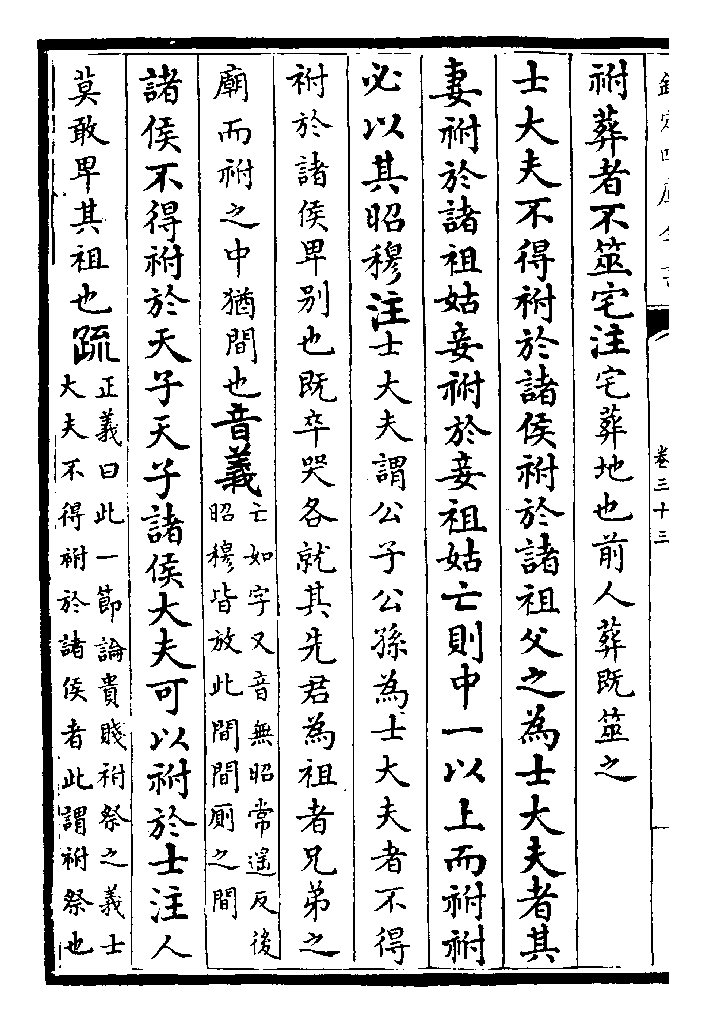 欽定四庫全書
卷三十三
祔葬者不筮宅注宅葬地也前人葬既筮之
士大夫不得祔於諸侯祔於諸祖父之為士大夫者其
妻祔於諸祖姑妾祔於妾祖姑亡則中一以上而祔祔
必以其昭穆注士大夫謂公子公孫為士大夫者不得
祔於諸侯卑别也既卒哭各就其先君為祖者兄弟之
廟而祔之中猶間也音義亡如字又音無昭常遥反後
昭穆皆放此間間厠之間
諸侯不得祔於天子天子諸侯大夫可以祔於士注人
莫敢卑其祖也疏正義曰此一節論貴賤祔祭之義士
大夫不得祔於諸侯者此謂祔祭也